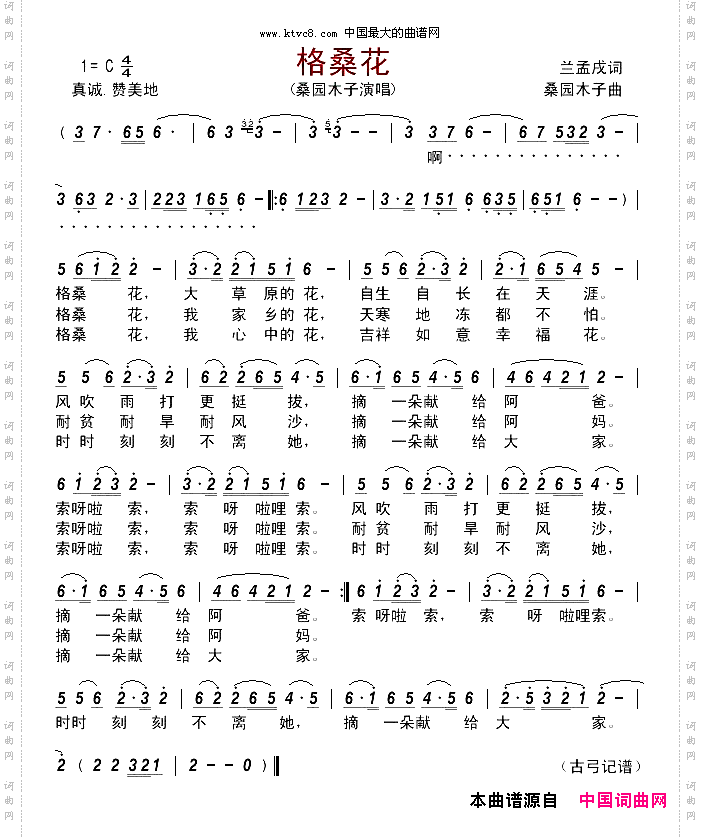 www.ktvc8.com 中国最大的曲谱网
格桑花
1= C 4/4
兰孟戍词
真诚.赞美地
(桑园木子演唱)
桑园木子曲
( 3 7· 6 5 6· | 6 3 323 - | 3 · 53 - - | 3 3 7 6 - | 6 7 532 3 -
啊················
3 63 2·3 | 223 165 6 - ‖: 6 123 2 - | 3·2 151 6 635 | 651 6 - - )
················
5 6 1 2 2 - | 3·2 2 1 5 1 6 - | 5 5 6 2·3 2 | 2·1 6 5 4 5 -
格桑 花， 大 草 原的 花， 自生 自 长 在 天 涯。
格桑 花， 我 家 乡的 花， 天寒 地 冻 都 不 怕。
格桑 花， 我 心 中的 花， 吉祥 如 意 幸 福 花。
5 5 6 2·3 2 | 6 2 2 6 5 4·5 | 6·1 6 5 4·5 6 | 4 6 4 2 1 2 -
风 吹 雨 打 更 挺 拔， 摘 一朵献 给 阿 爸。
耐 贫 耐 旱 耐 风 沙， 摘 一朵献 给 阿 妈。
时 时 刻 刻 不 离 她， 摘 一朵献 给 大 家。
6 1 2 3 2 - | 3·2 2 1 5 1 6 - | 5 5 6 2·3 2 | 6 2 2 6 5 4·5
索呀啦 索， 索 呀 啦哩 索。 风 吹 雨 打 更 挺 拔，
索呀啦 索， 索 呀 啦哩 索。 耐 贫 耐 旱 耐 风 沙，
索呀啦 索， 索 呀 啦哩 索。 时 时 刻 刻 不 离 她，
6·1 6 5 4·5 6 | 4 6 4 2 1 2 - :‖ 6 1 2 3 2 - | 3·2 2 1 5 1 6 -
摘 一朵献 给 阿 爸。 索 呀啦 索， 索 呀 啦哩索。
摘 一朵献 给 阿 妈。
摘 一朵献 给 大 家。
5 5 6 2·3 2 | 6 2 2 6 5 4·5 | 6·1 6 5 4·5 6 | 2·5 3 2 1 2 -
时时 刻 刻 不 离 她， 摘 一朵献 给 大 家。
2 ( 2 2 3 2 1 | 2 - - 0 )‖
(古弓记谱)
本曲谱源自 中国词曲网